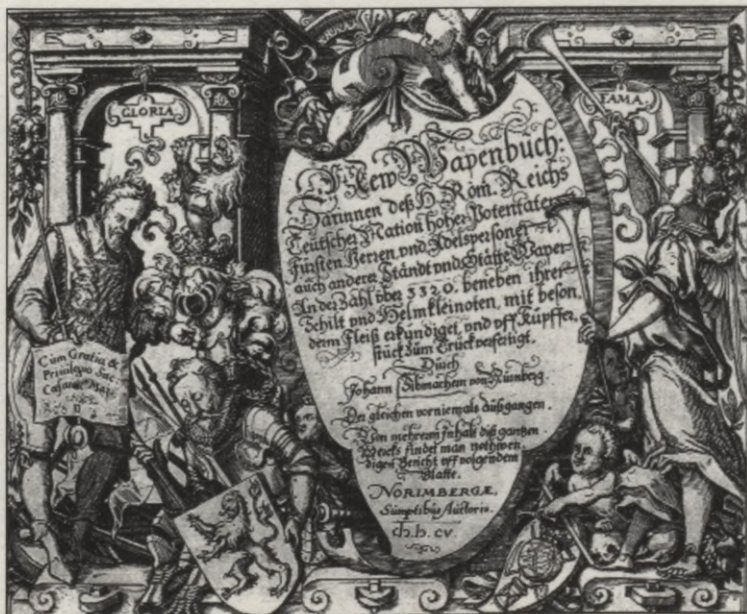 GLORIA
FAMA.
New Wapenbuch:
Darinnen deß H. Röm. Reichs
Teutscher Nation hoher Potentaten
Fürsten, Herren, vnd Adelspersonen
auch anderer Ständt vnd Stätte Wapen
An der Zahl vber 3320. beneben ihrer
Schilt vnd Helmkleinoten, mit beson,
derm Fleiß erkündiget, vnd vff Küpffer,
stück zum Truck verfertigt.
Durch
Johann Sibmachern von Nürnberg.
Der gleichen vor niemals außgangen.
Von mehrerm jnhalt diß gantzen
Wercks findet man nothwen,
digen Bericht vff volgendem
Blatte.
NORIMBERGÆ,
Sumptibus Auctoris.
CVM Gratia &
Priuilegio Sac.
Cæsareæ Mai.